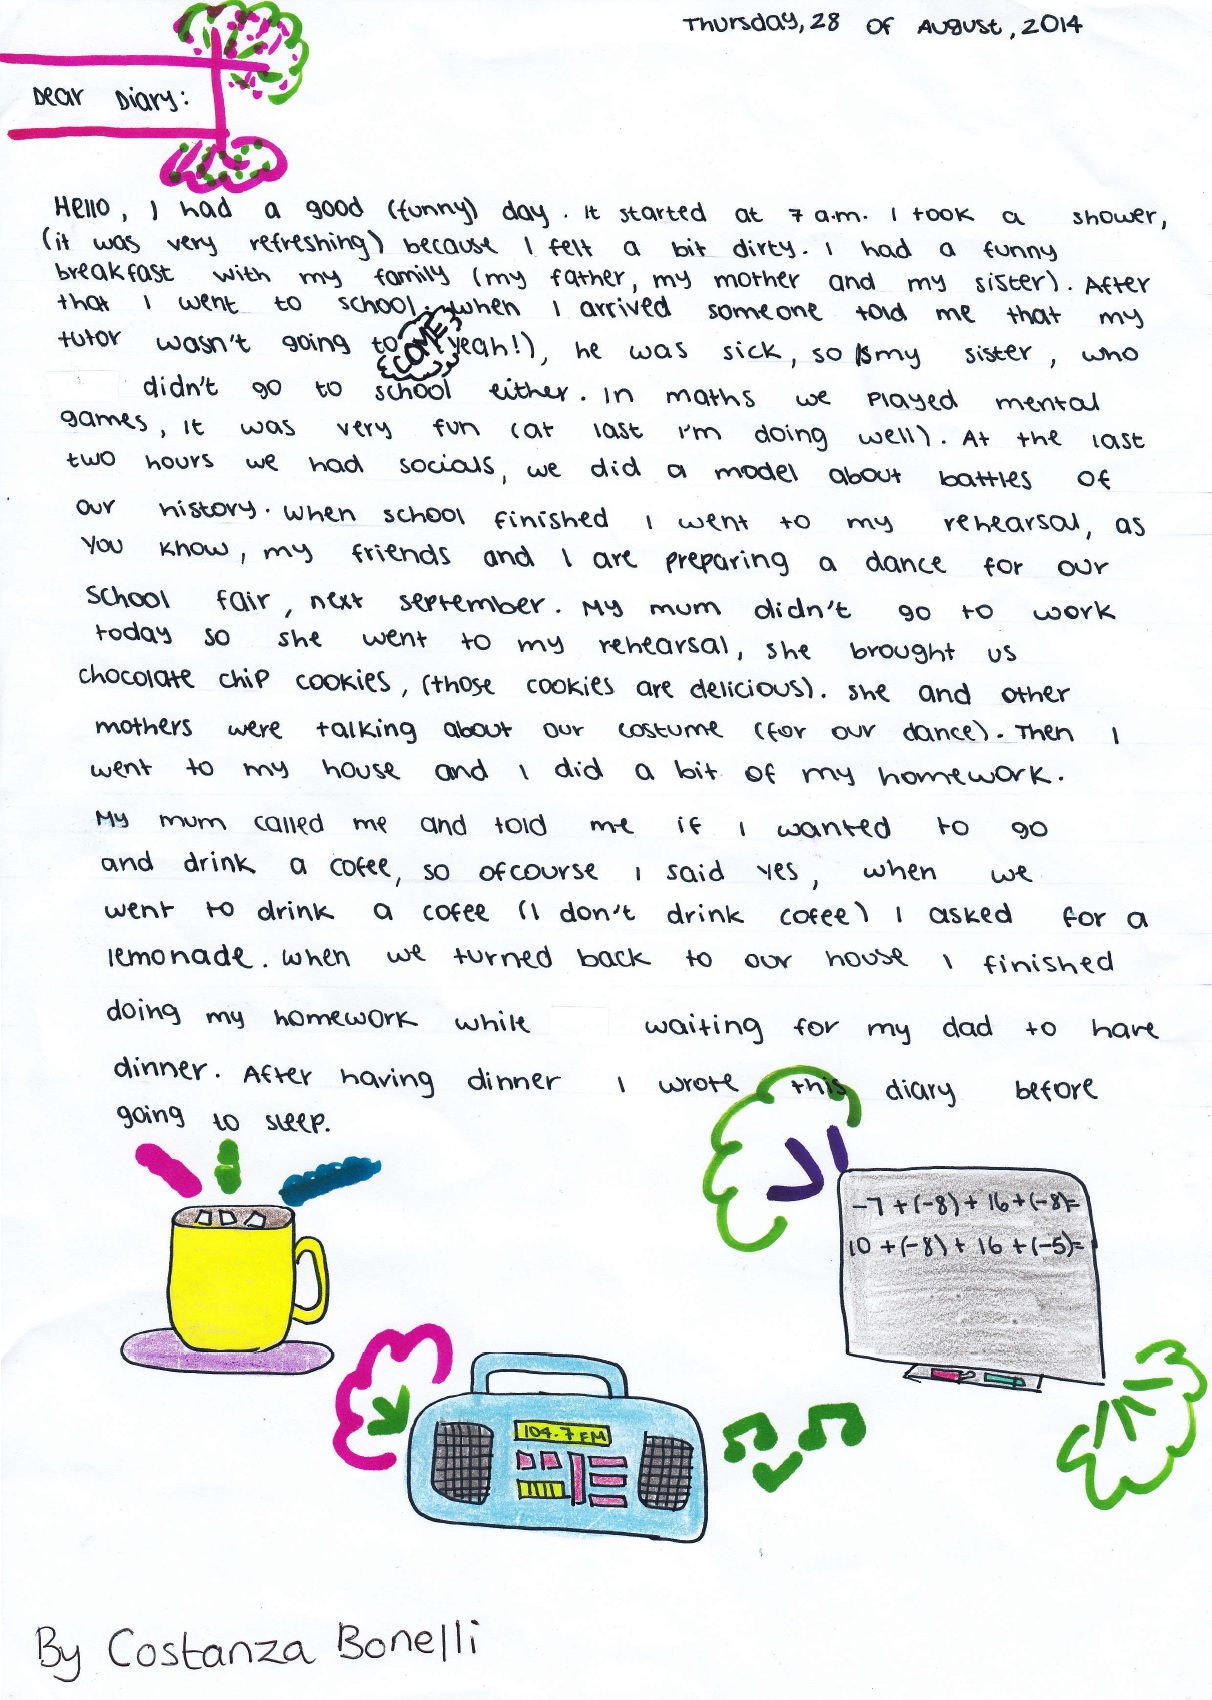 Thursday, 28 of August, 2014
Dear Diary:
Hello, I had a good (funny) day. It started at 7 a.m. I took a shower,
(it was very refreshing) because I felt a bit dirty. I had a funny
breakfast with my family (my father, my mother and my sister). After
that I went to school. When I arrived someone told me that my
tutor wasn't going to COME (yeah!), he was sick, so is my sister, who
didn't go to school either. In maths we played mental
games, it was very fun (at last I'm doing well). At the last
two hours we had socials, we did a model about battles of
our history. When school finished I went to my rehearsal, as
you know, my friends and I are preparing a dance for our
school fair, next september. My mum didn't go to work
today so she went to my rehearsal, she brought us
chocolate chip cookies, (those cookies are delicious). She and other
mothers were talking about our costume (for our dance). Then I
went to my house and I did a bit of my homework.
My mum called me and told me if I wanted to go
and drink a cofee, so ofcourse I said yes, when we
went to drink a cofee (I don't drink cofee) I asked for a
lemonade. When we turned back to our house I finished
doing my homework while waiting for my dad to have
dinner. After having dinner I wrote this diary before
going to sleep.
-7+(-8)+16+(-8)=
10+(-8)+16+(-5)=
104.7 FM
By Costanza Bonelli